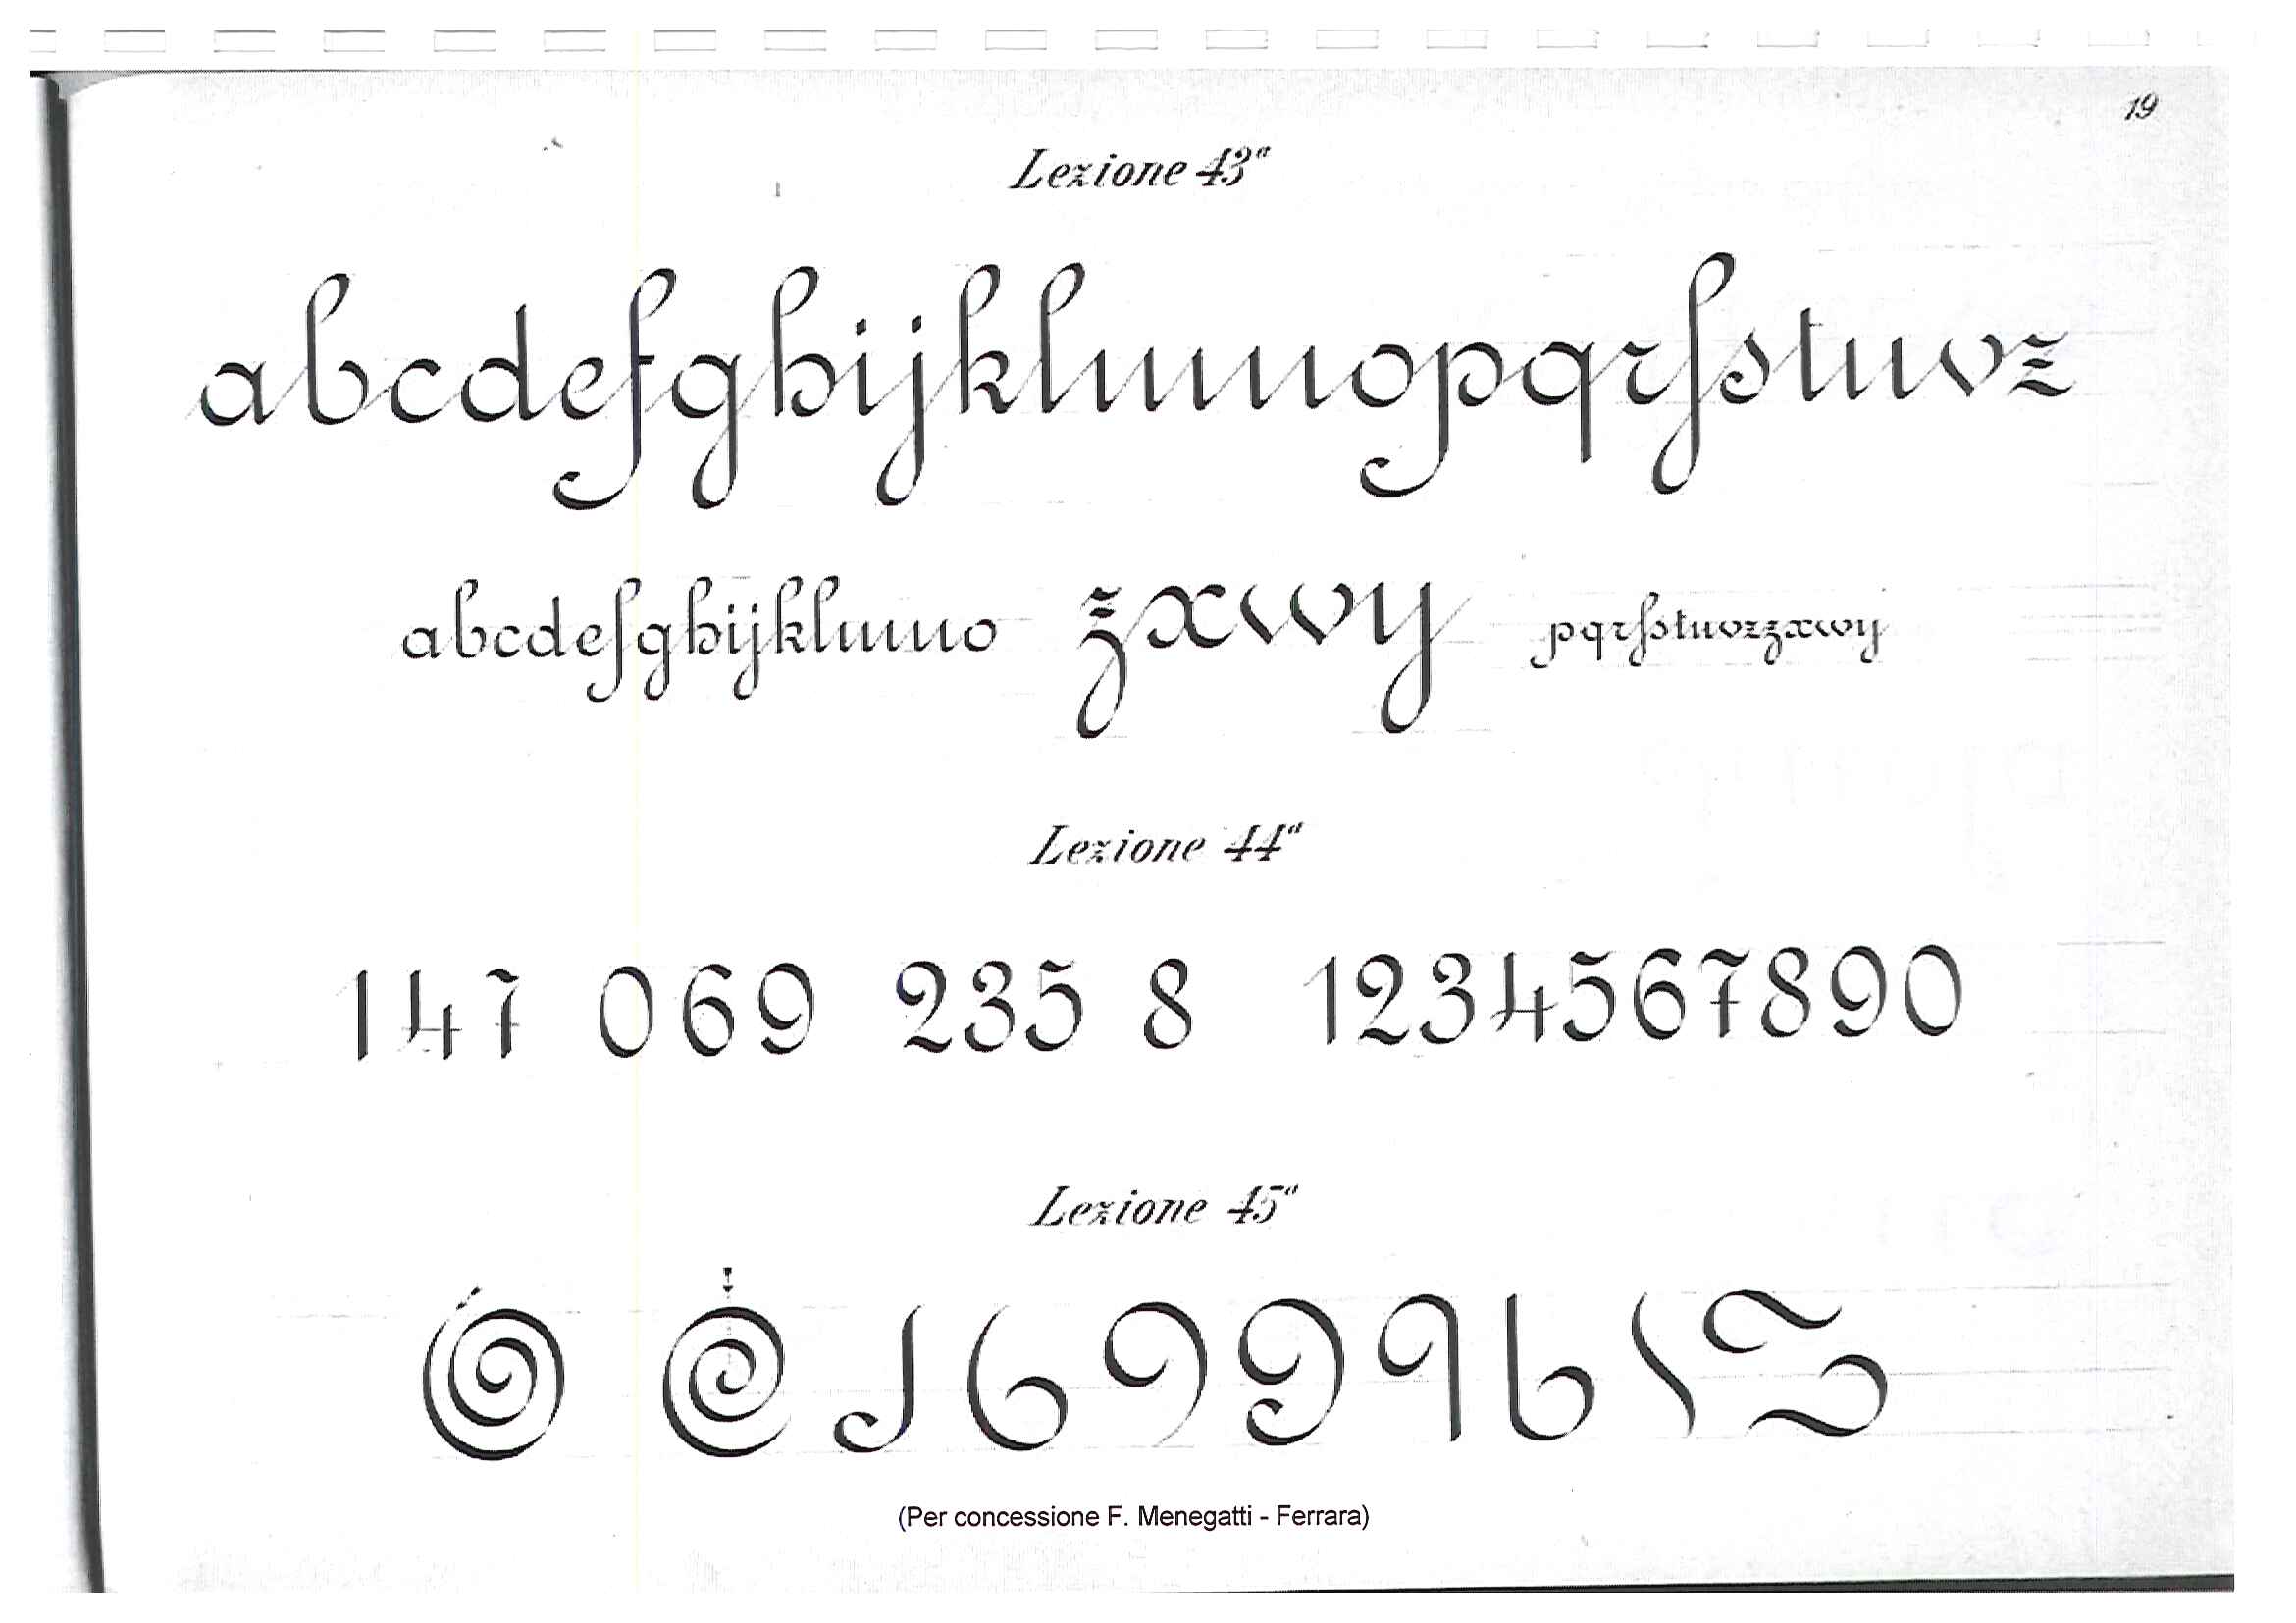 19
Lezione 43ª
abcdefghijklmnopqrſstuvz
abcdefghijklmno zxwy pqrſstuvzzxwy
Lezione 44ª
147 069 235 8 1234567890
Lezione 45ª
(Per concessione F. Menegatti - Ferrara)